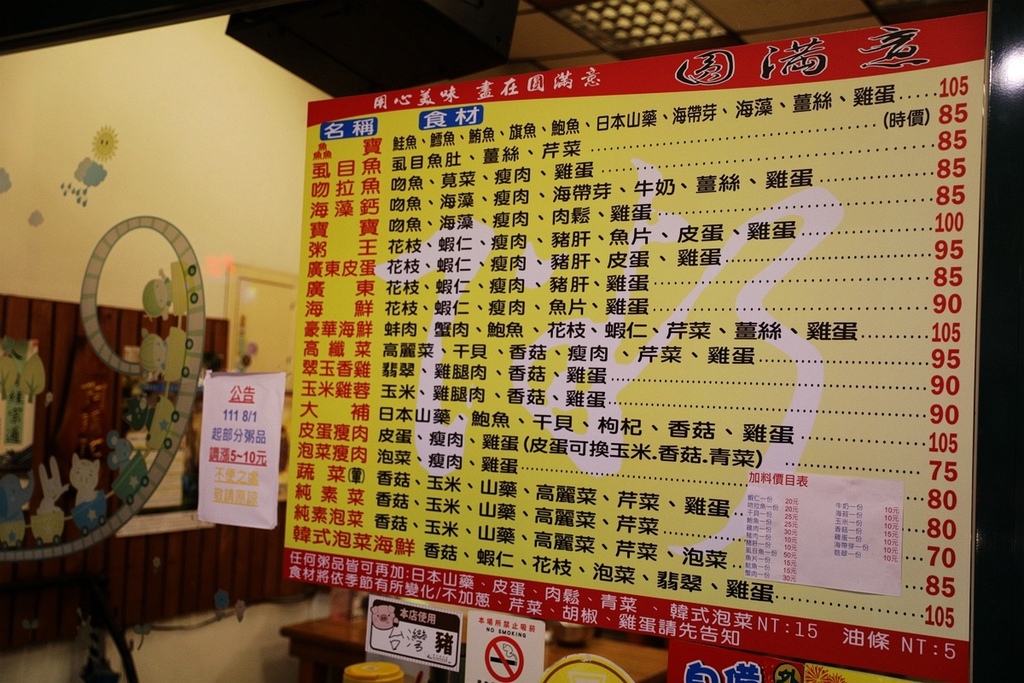 用心美味 盡在圓滿意 圓滿意
名稱 食材
鱻寶 鮭魚、鱈魚、鮪魚、旗魚、鮑魚、日本山藥、海帶芽、海藻、薑絲、雞蛋.....105
(時價)
虱目魚 虱目魚肚、薑絲、芹菜 85
吻拉魚 吻魚、莧菜、瘦肉、雞蛋 85
海藻鈣 吻魚、海藻、瘦肉、海帶芽、牛奶、薑絲、雞蛋 85
寶寶 吻魚、海藻、瘦肉、肉鬆、雞蛋 85
粥王 花枝、蝦仁、瘦肉、豬肝、魚片、皮蛋、雞蛋 100
廣東皮蛋 花枝、蝦仁、瘦肉、豬肝、皮蛋、雞蛋 95
廣東 花枝、蝦仁、瘦肉、豬肝、雞蛋 85
海鮮 花枝、蝦仁、瘦肉、魚片、雞蛋 90
豪華海鮮 蚌肉、蟹肉、鮑魚、花枝、蝦仁、芹菜、薑絲、雞蛋 105
高纖菜 高麗菜、干貝、香菇、瘦肉、芹菜、雞蛋 95
翠玉香雞 翡翠、雞腿肉、香菇、雞蛋 90
玉米雞蓉 玉米、雞腿肉、香菇、雞蛋 90
大補 日本山藥、鮑魚、干貝、枸杞、香菇、雞蛋 105
皮蛋瘦肉 皮蛋、瘦肉、雞蛋(皮蛋可換玉米.香菇.青菜) 75
泡菜瘦肉 泡菜、瘦肉、雞蛋 80
蔬菜(葷) 香菇、玉米、山藥、高麗菜、芹菜、雞蛋 80
純素菜 香菇、玉米、山藥、高麗菜、芹菜 70
純素泡菜 香菇、玉米、山藥、高麗菜、芹菜、泡菜 85
韓式泡菜海鮮 香菇、蝦仁、花枝、泡菜、翡翠、雞蛋 105
任何粥品皆可再加:日本山藥、皮蛋、肉鬆、青菜、韓式泡菜NT:15 油條 NT:5
食材將依季節有所變化/不加蔥、芹菜、胡椒、雞蛋請先告知
加料價目表
蝦仁一份 20元
吻拉魚一份 20元
干貝一份 25元
鮑魚一份 25元
虱目魚一份 50元
魚片一份 15元
蟹肉一份 30元
牛奶一份 10元
海菇一份 10元
玉米一份 10元
香菇一份 10元
雞蛋一份 10元
海帶芽一份 10元
公告
111 8/1
起部分粥品
調漲5~10元
不便之處
敬請原諒
本店使用
台灣豬
本場所禁止吸菸
NO SMOKING
自備